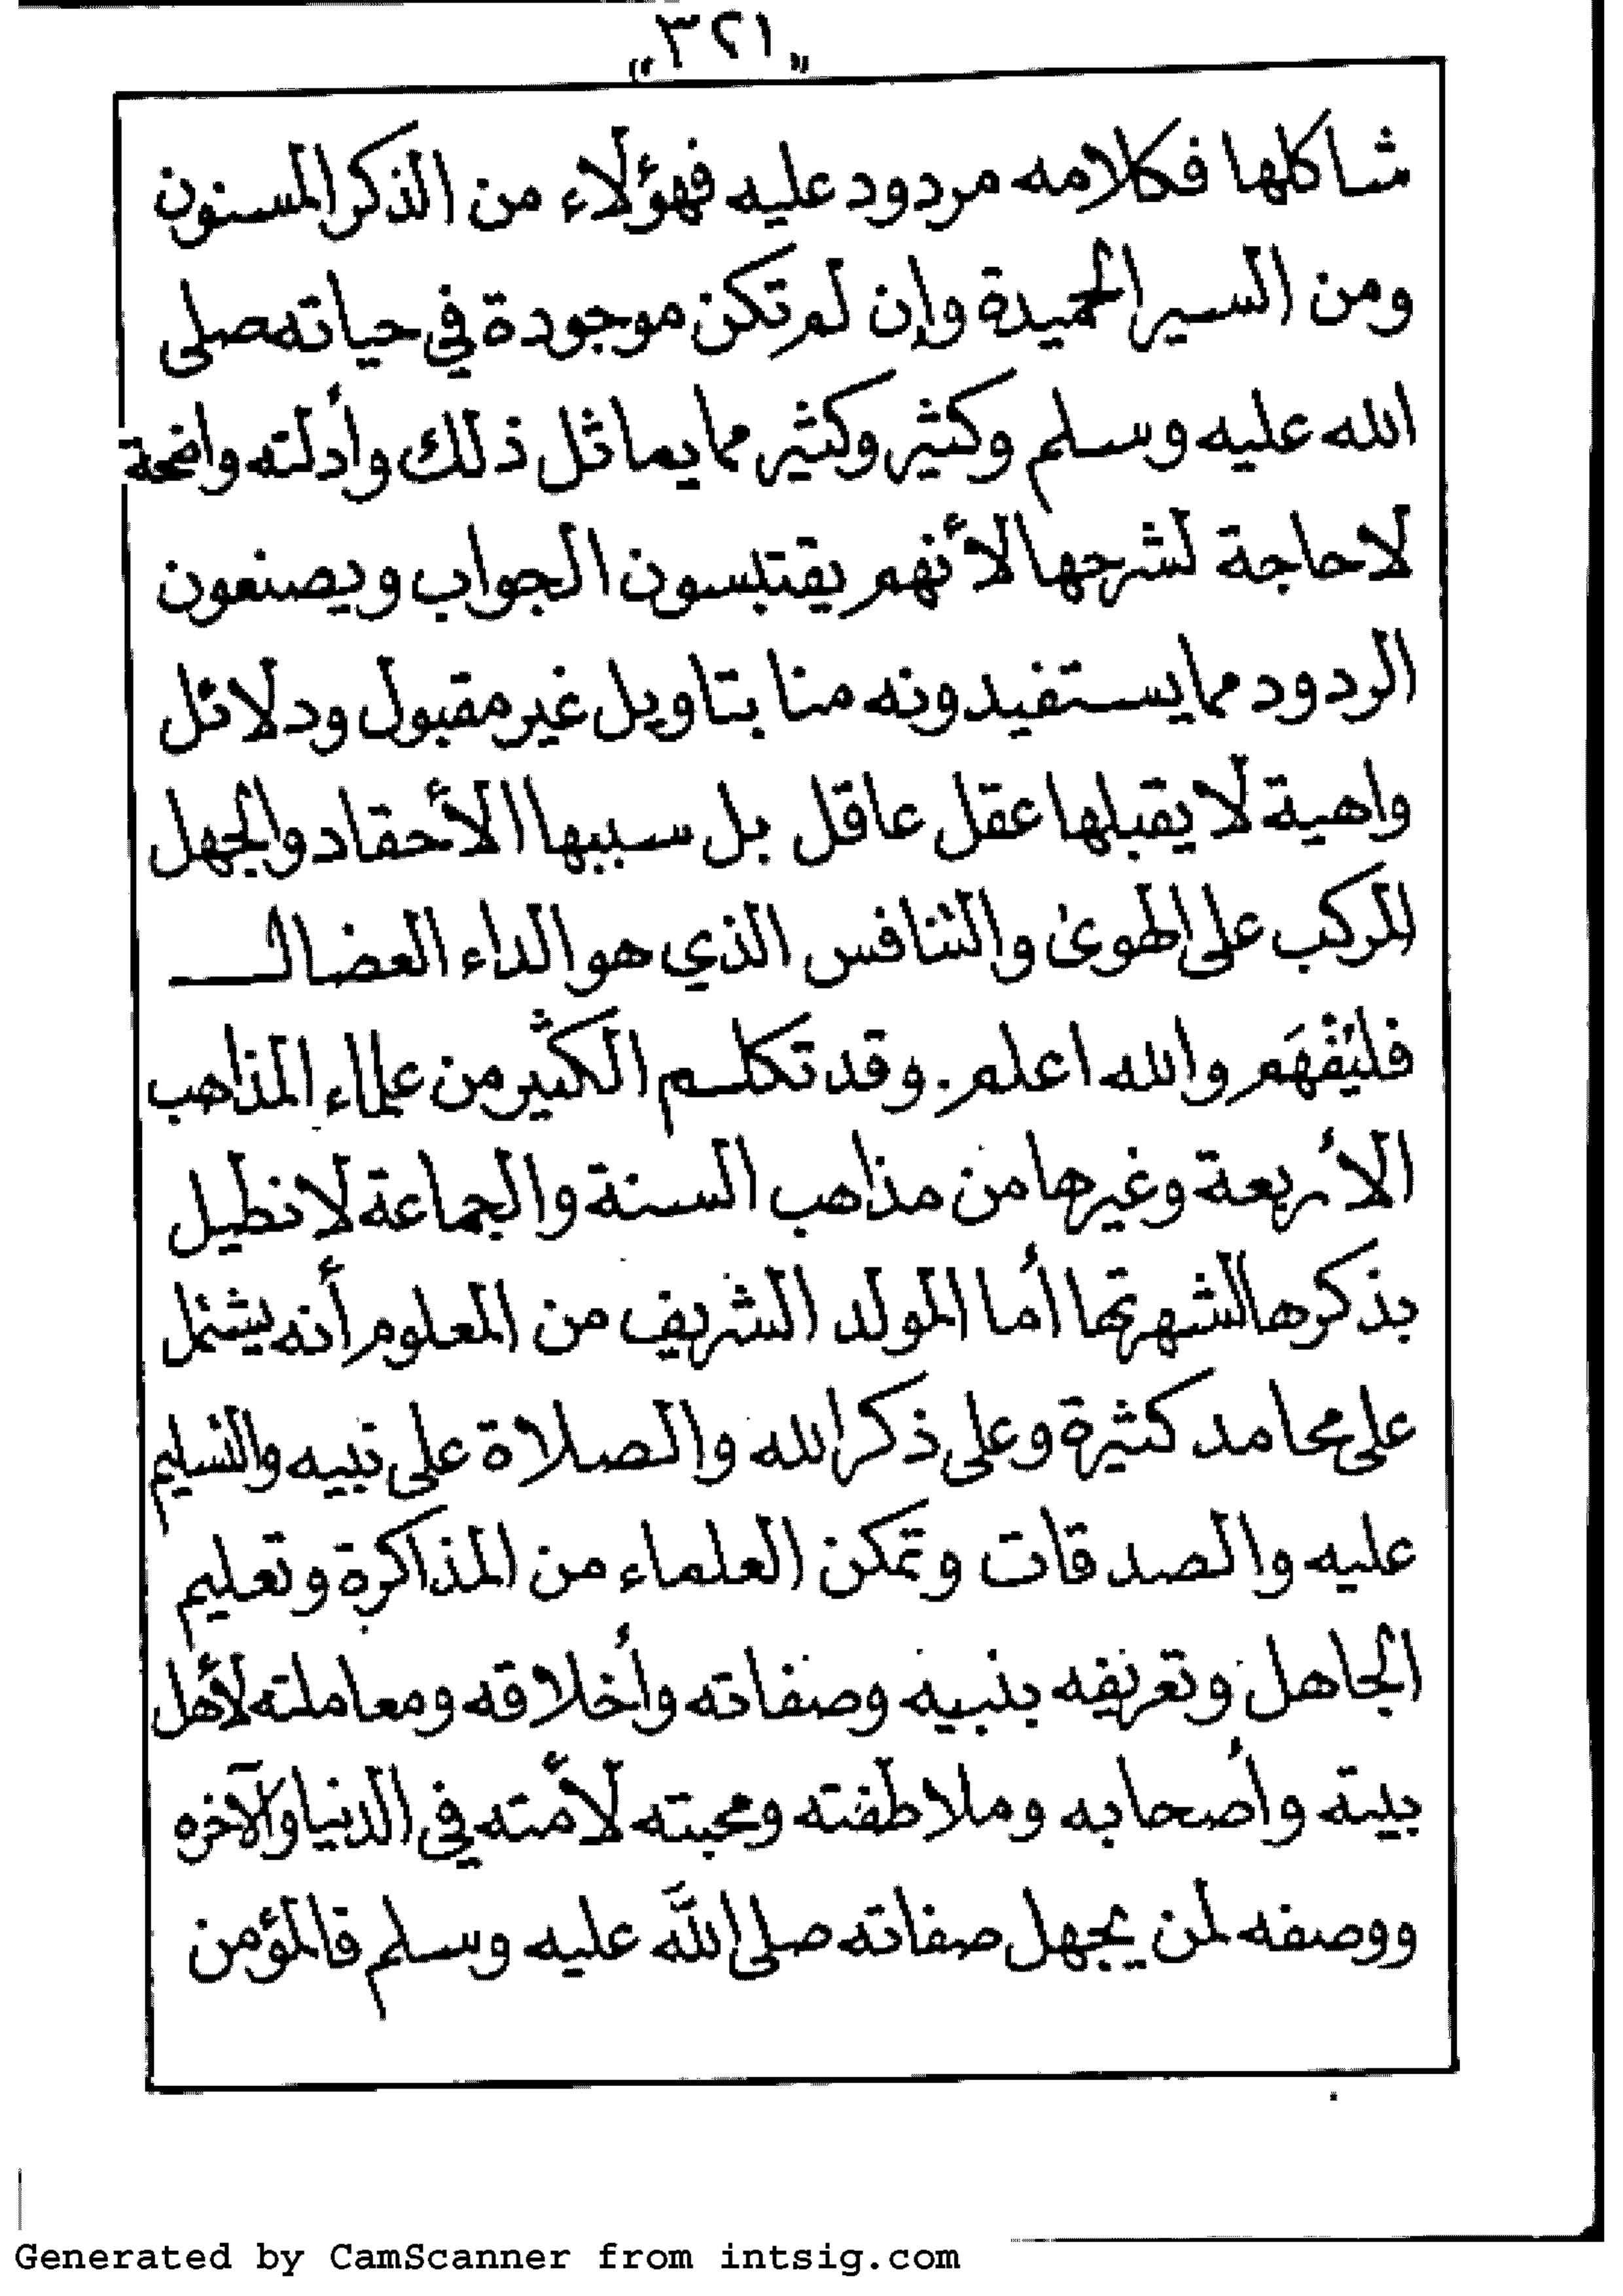 "٣٢١"
شاكلها فكلامه مردود عليه فهؤلاء من الذكر المسنون
ومن السير الحميدة وإن لم تكن موجودة في حياته صلى
الله عليه وسلم وكثير وكثير مما يماثل ذلك وأدلته واضحة
لا حاجة لشرحها لأنهم يقتبسون الجواب ويصنعون
الردود مما يستفيدونه منا بتاويل غير مقبول ودلائل
واهية لا يقبلها عقل عاقل بل سببها الأحقاد والجهل
المركب على الهوى والتنافس الذي هو الداء العضال
فليُفْهَم والله اعلم. وقد تكلم الكثير من علماء المذاهب
الأربعة وغيرها من مذاهب السنة والجماعة لا نطيل
بذكرها لشهرتها أما المولد الشريف من المعلوم أنه يشتمل
على محامد كثيرة وعلى ذكر الله والصلاة على نبيه والتسليم
عليه والصدقات وتمكن العلماء من المذاكرة وتعليم
الجاهل وتعريفه بنبيه وصفاته وأخلاقه ومعاملته لأهل
بيته وأصحابه وملاطفته ومحبته لأمته في الدنيا والآخره
ووصفه لمن يجهل صفاته صلى الله عليه وسلم فالمؤمن
Generated by CamScanner from intsig.com